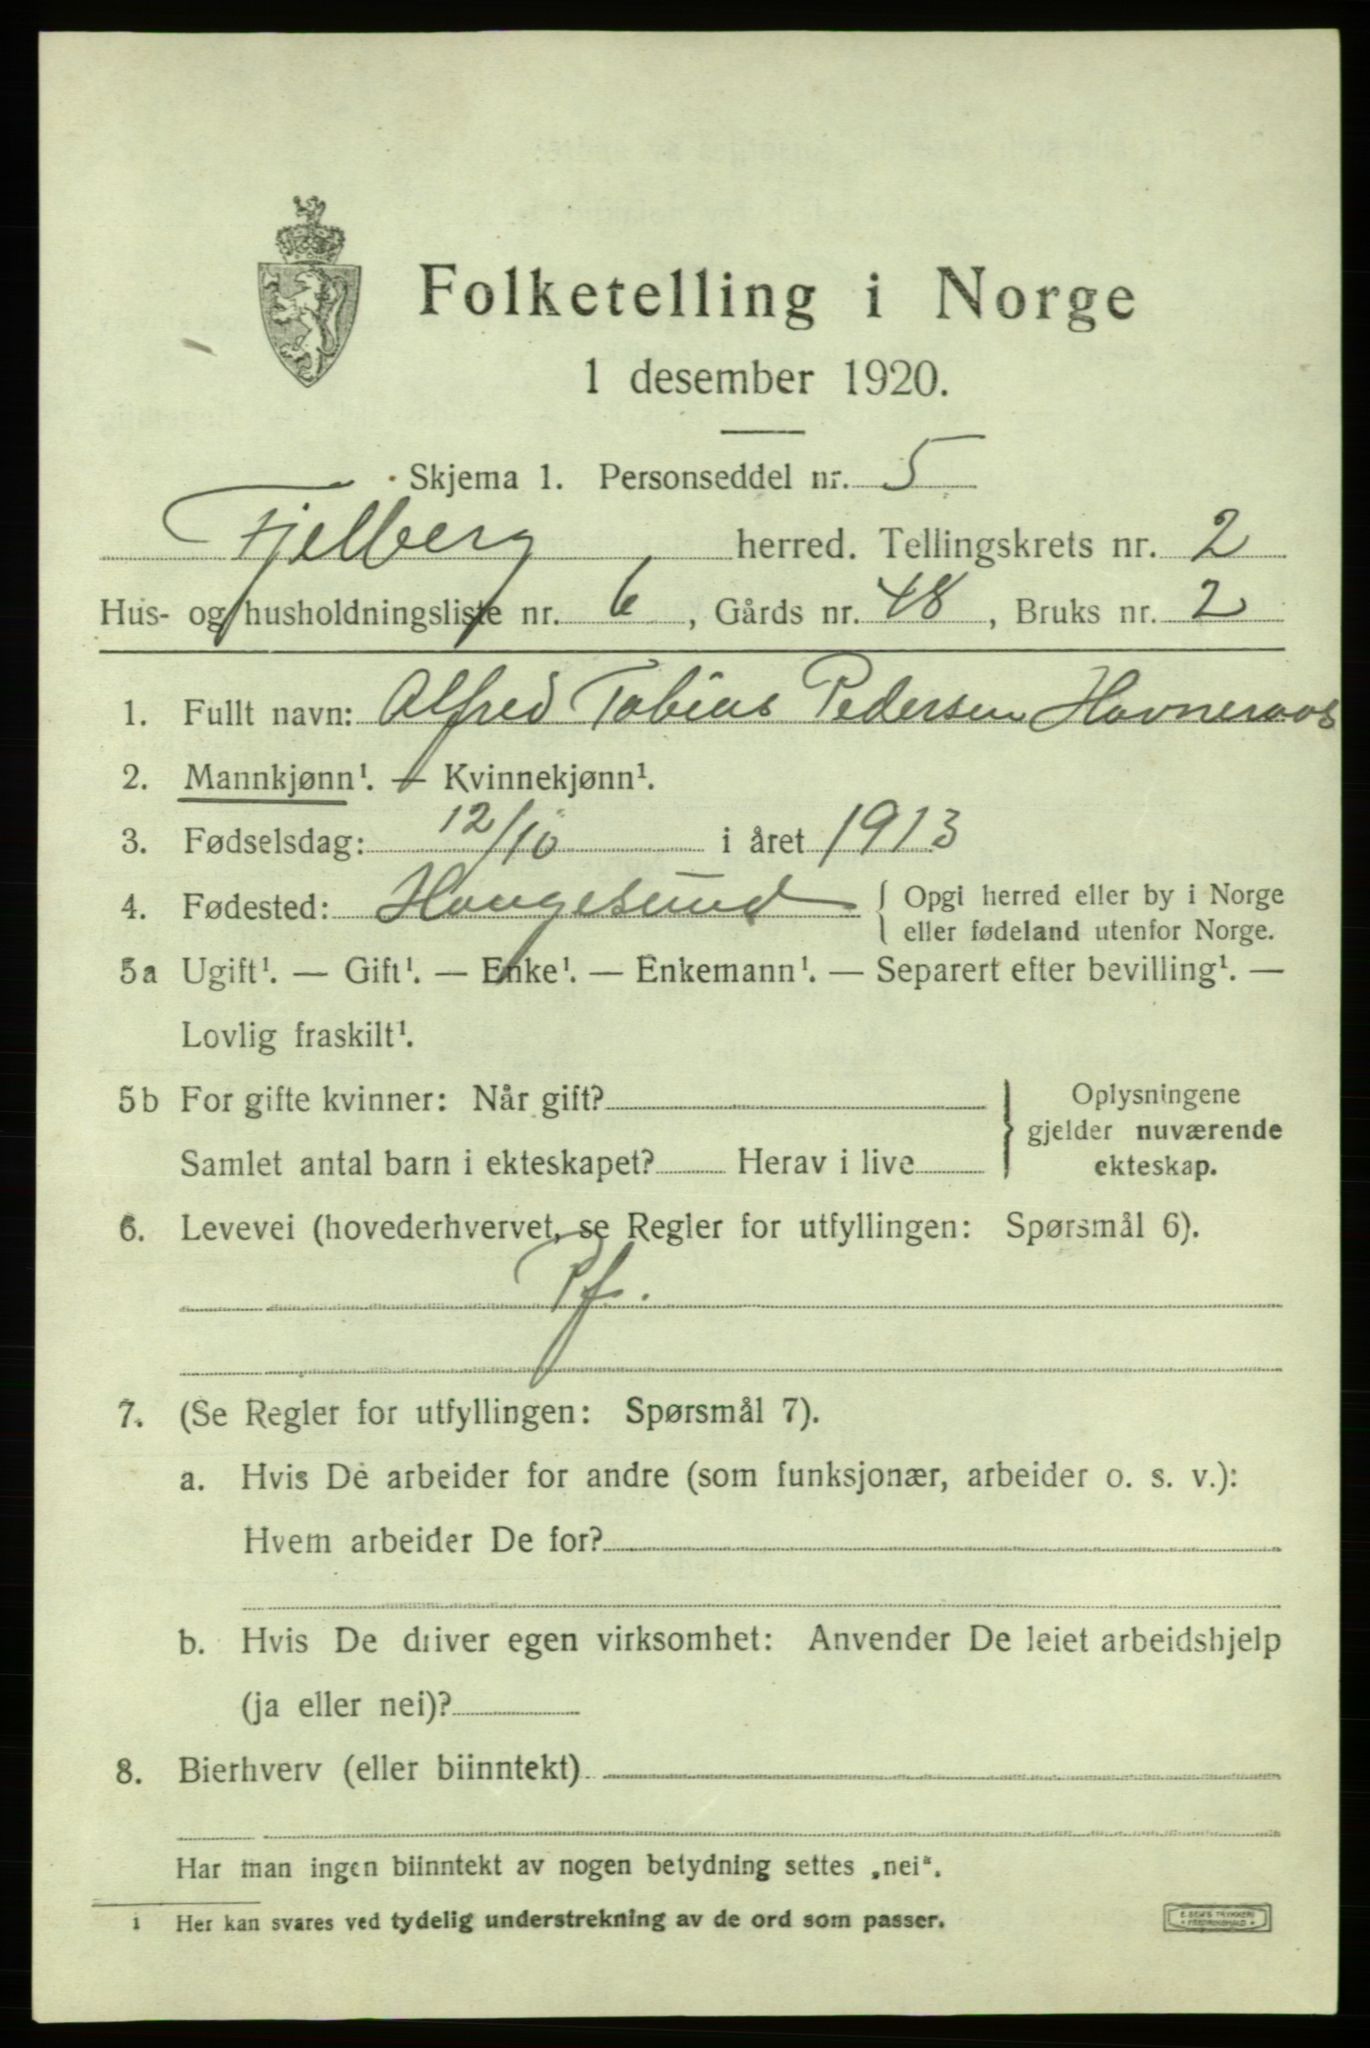 Folketelling i Norge
1 desember 1920.
Skjema 1. Personseddel nr. 5
Fjelberg herred. Tellingskrets nr. 2
Hus- og husholdningsliste nr. 6, Gårds nr. 48, Bruks nr. 2
1. Fullt navn: Alfred Tobias Pedersen Havneraas
2. Mannkjønn¹. — Kvinnekjønn¹.
3. Fødselsdag: 12/10 i året 1913
4. Fødested: Haugesund { Opgi herred eller by i Norge
eller fødeland utenfor Norge.
5a Ugift¹. — Gift¹. — Enke¹. — Enkemann¹. — Separert efter bevilling¹. —
Lovlig fraskilt¹.
5b For gifte kvinner: Når gift?
Samlet antal barn i ekteskapet? Herav i live
Oplysningene
gjelder nuværende
ekteskap.
6. Levevei (hovederhvervet, se Regler for utfyllingen: Spørsmål 6).
Pf.
7. (Se Regler for utfyllingen: Spørsmål 7).
a. Hvis De arbeider for andre (som funksjonær, arbeider o. s. v.):
Hvem arbeider De for?
b. Hvis De driver egen virksomhet: Anvender De leiet arbeidshjelp
(ja eller nei)?
8. Bierhverv (eller biinntekt)
Har man ingen biinntekt av nogen betydning settes „nei“.
1 Her kan svares ved tydelig understrekning av de ord som passer.